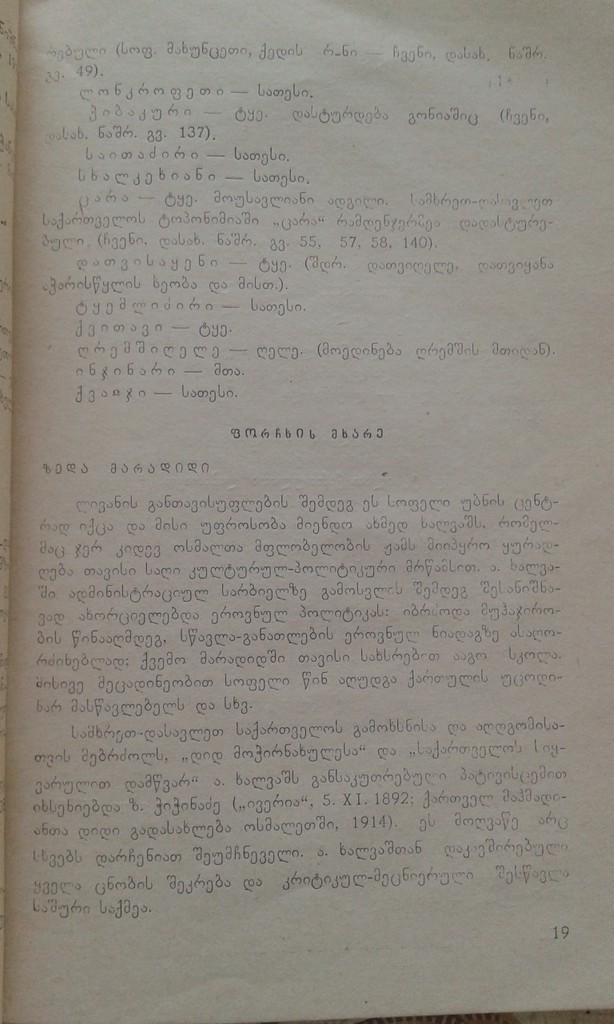 რებული (სოფ. მახუნცეთი, ქედის რ-ნი — ჩვენი, დასახ. ნაშრ.
გვ. 49).
ლონკროფეთი — სათესი.
ჭიბაკური — ტყე. დასტურდება გონიაშიც (ჩვენი,
დასახ. ნაშრ. გვ. 137).
საითაძირი — სათესი.
სხალკეხიანი — სათესი.
ცარა — ტყე. მოუსავლიანი ადგილი. სამხრეთ-დასავლეთ
საქართველოს ტოპონიმიაში „ცარა“ რამდენჯერმეა დადასტურე-
ბული (ჩვენი, დასახ. ნაშრ. გვ. 55, 57, 58, 140).
დათვისაყენი — ტყე. (შდრ. დათვიღელე, დათვიყანა
აჭარისწყლის ხეობა და მისთ.).
ტყემლიძირი — სათესი.
ქვითავი — ტყე.
ღრემშიღელე — ღელე. (მოედინება ღრემშის მთიდან).
ინჯინარი — მთა.
— სათესი.
ფორჩხის მხარე
ზედა მარადიდი
ლივანის განთავისუფლების შემდეგ ეს სოფელი უბნის ცენტ-
რად იქცა და მისი უფროსობა მიენდო ახმედ ხალვაშს, რომელ-
მაც ჯერ კიდევ ოსმალთა მფლობელობის ჟამს მიიპყრო ყურად-
ღება თავისი საღი კულტურულ-პოლიტიკური მრწამსით. ა. ხალვა-
ში ადმინისტრაციულ სარბიელზე გამოსვლის შემდეგ შესანიშნა-
ვად ახორციელებდა ეროვნულ პოლიტიკას: იბრძოდა მუჰაჯირო-
ბის წინააღმდეგ, სწავლა-განათლების ეროვნულ ნიადაგზე ასაღო-
რძინებლად; ქვემო მარადიდში თავისი სახსრებით ააგო სკოლა.
მისივე მეცადინეობით სოფელი წინ აღუდგა ქართულის უცოდი-
ნარ მასწავლებელს და სხვ.
სამხრეთ-დასავლეთ საქართველოს გამოხსნისა და აღდგომისა-
თვის მებრძოლს, „დიდ მოჭირნახულესა“ და „საქართველოს სიყ-
ვარულით დამწვარ“ ა. ხალვაშს განსაკუთრებული პატივისცემით
იხსენიებდა ზ. ჭიჭინაძე („ივერია“, 5. XI. 1892; ქართველ მაჰმადი-
ანთა დიდი გადასახლება ოსმალეთში, 1914). ეს მოღვაწე არც
სხვებს დარჩენიათ შეუმჩნეველი. ა. ხალვაშთან დაკავშირებული
ყველა ცნობის შეკრება და კრიტიკულ-მეცნიერული შესწავლა
საშური საქმეა.
19